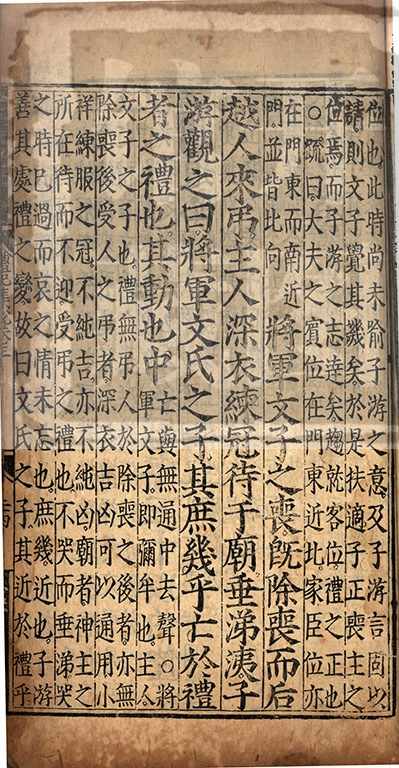 位也此時尚未喻子游之意及子游言固以
請則文子覺其幾矣於是扶適子正喪主之
位焉而子游之志達矣趨就客位禮之正也
○疏曰大夫之賓位在門東近北家臣位亦
在門東而南近
門並皆北向
將軍文子之喪既除喪而后
越人來弔主人深衣練冠待于廟垂涕洟子
游觀之曰將軍文氏之子其庶幾乎亡於禮
者之禮也其動也中
亡與無通中去聲○將
軍文子即彌牟也主人
文子之子也禮無弔人於除喪之後者亦無
除喪後受人之弔者深衣吉凶可以通用小
祥練服之冠不純吉亦不純凶廟者神主之
所在待而不迎受弔之禮也不哭而垂涕哭
之時已過而哀之情未忘也庶幾近也子游
善其處禮之變故曰文氏之子其近於禮乎